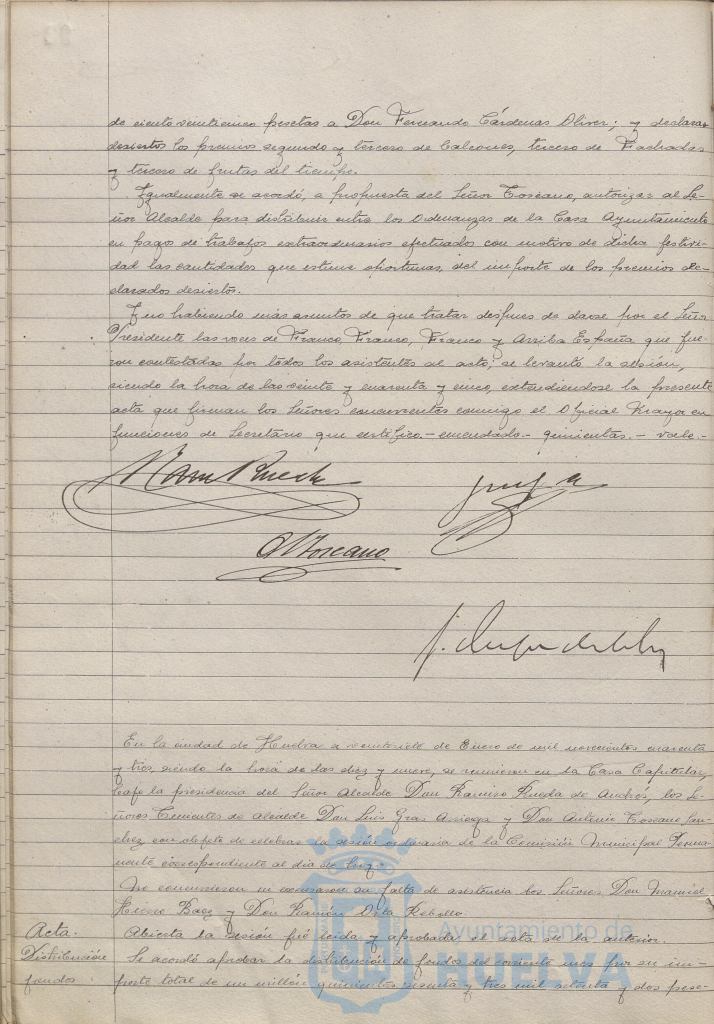 de ciento veinticinco pesetas a Don Fernando Cárdenas Oliver; y declarar
desiertos los premios segundo y tercero de Balcones, tercero de Fachadas
y tercero de frutas del tiempo.
Igualmente se acordó, a propuesta del Señor Toscano, autorizar al Se-
ñor Alcalde para distribuir entre los Ordenanzas de la Casa Ayuntamiento
en pago de trabajos extraordinarios efectuados con motivo de dicha festivi-
dad las cantidades que estime oportunas, del importe de los premios de-
clarados desiertos.
Y no habiendo más asuntos de que tratar despues de darse por el Señor
Presidente las voces de Franco, Franco, Franco y Arriba España que fue-
ron contestadas por todos los asistentes al acto; se levantó la sesión,
siendo la hora de las veinte y cuarenta y cinco, extendiendose la presente
acta que firman los Señores concurrentes conmigo el Oficial Mayor en
funciones de Secretario que certifico.- enmendado.- quinientas.- vale.-
Rueda
Toscano
En la ciudad de Huelva a veintisiete de Enero de mil novecientos cuarenta
y tres, siendo la hora de las diez y nueve, se reunieron en la Casa Capitular,
bajo la presidencia del Señor Alcalde Don Ramiro Rueda de Andrés, los Se-
ñores Tenientes de Alcalde Don Luis Gras Arriaga y Don Antonio Toscano San-
chez con objeto de celebrar la sesión ordinaria de la Comisión Municipal Perma-
nente correspondiente al día de hoy.
No concurrieron ni excusaron su falta de asistencia los Señores Don Manuel
Baez y Don Ramón Rebollo.
Acta. Abierta la sesión fué leida y aprobada el acta de la anterior.
Distribución Se acordó aprobar la distribución de fondos del corriente mes por su im-
fondos. porte total de un millón quinientas sesenta y tres mil setenta y dos pese-
Ayuntamiento de
HUELVA